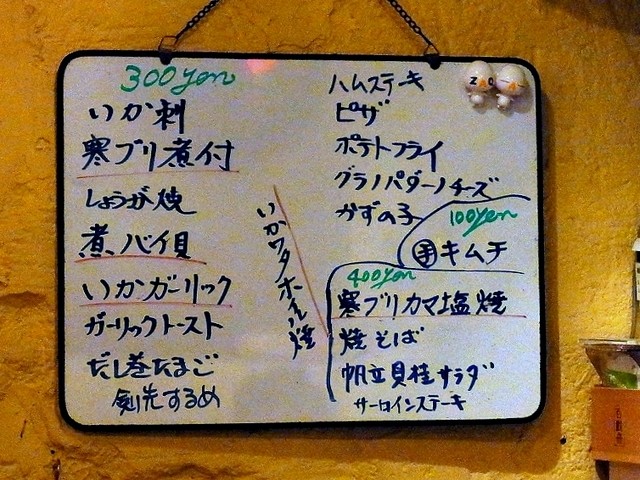 300yen
いか刺
寒ブリ煮付
しょうが焼
煮バイ貝
いかガーリック
ガーリックトースト
だし巻たまご
剣先するめ
いかワタホイル焼
ハムステーキ
ピザ
ポテトフライ
グラノパダーノチーズ
かずの子
100yen
手キムチ
400yen
寒ブリカマ塩焼
焼そば
帆立貝柱サラダ
サーロインステーキ